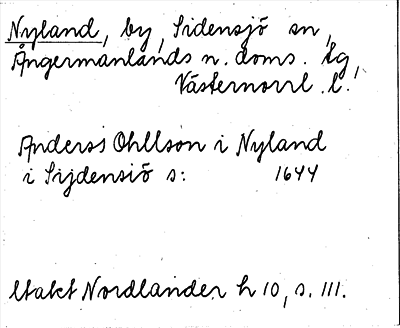 Nyland, by, Sidensjö sn,
Ångermanlands n. doms. tg,
Västernorrl. l.
Anders Ohllson i Nyland
i Sijdensiö s: 1644
Utakt Nordlander h 10, s. 111.